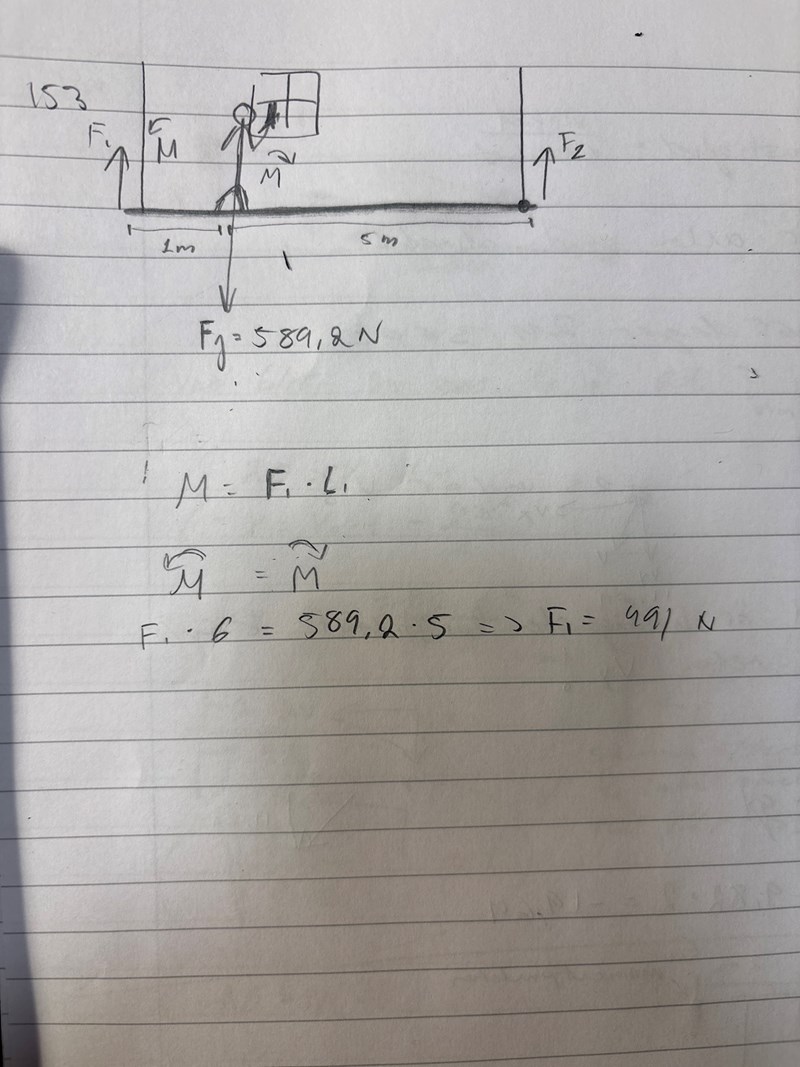 153
F₁ M F₂
M
1m 5m
Fg = 589,2 N
M = F₁ · L₁
M = M
F₁ · 6 = 589,2 · 5 => F₁ = 491 N